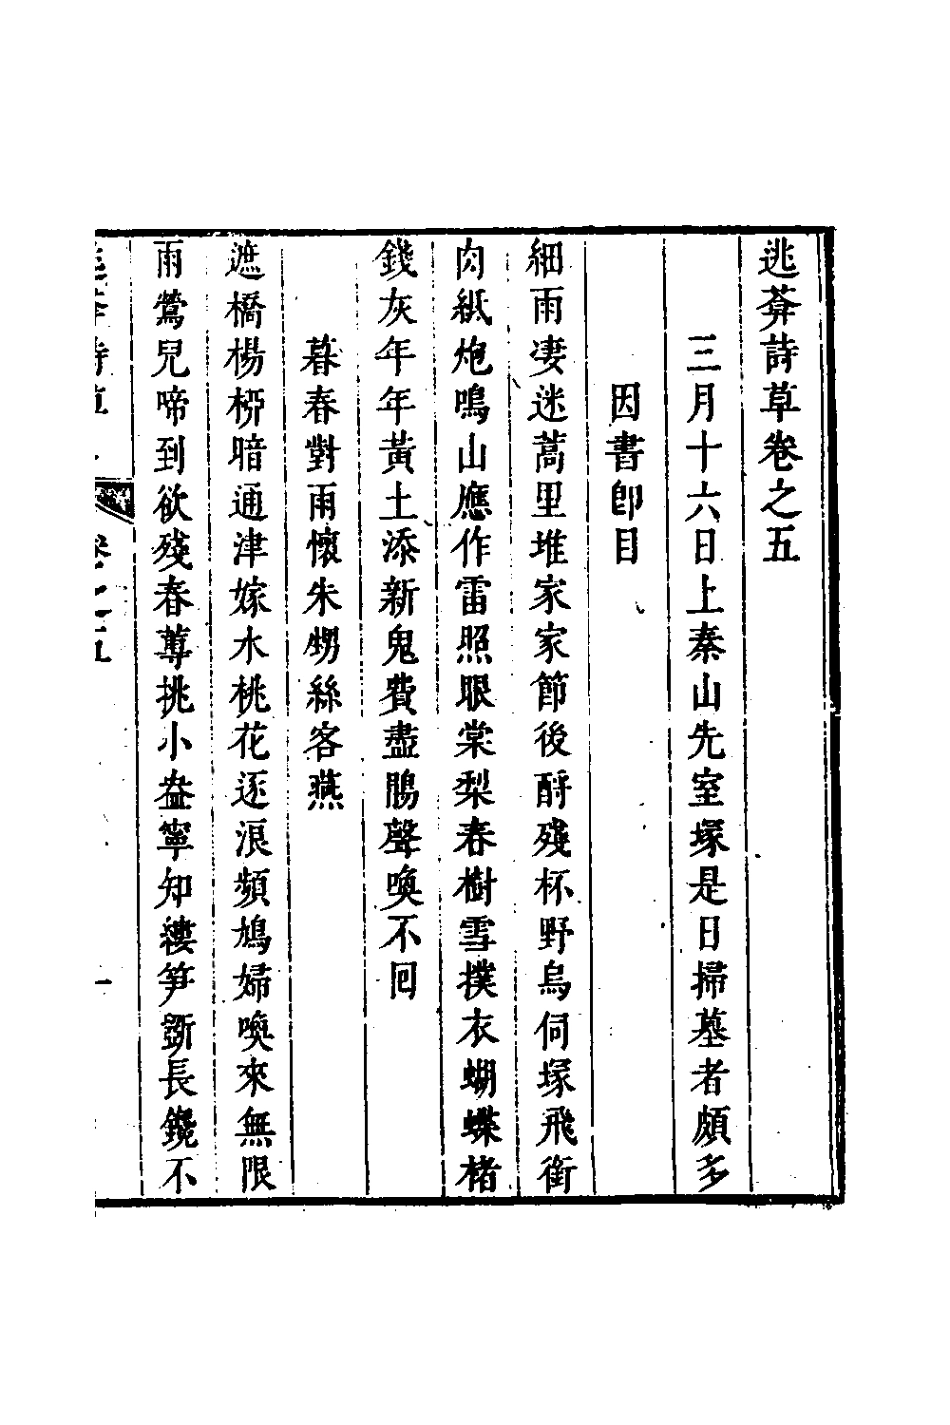 逃葊詩草卷之五
三月十六日上秦山先室塚是日掃墓者頗多
因書卽目
細雨凄迷蒿里堆家家節後酹殘杯野烏伺塚飛銜
肉紙炮鳴山應作雷照眼棠梨春樹雪撲衣蝴蝶楮
錢灰年年黃土添新鬼費盡鵑聲喚不回
暮春對雨懷朱甥絲客燕
遮橋楊柳暗通津嫁水桃花逐浪頻鳩婦喚來無限
雨鶯兒啼到欲殘春蓴挑小盎寧知縷笋斲長鑱不
卷之五
一